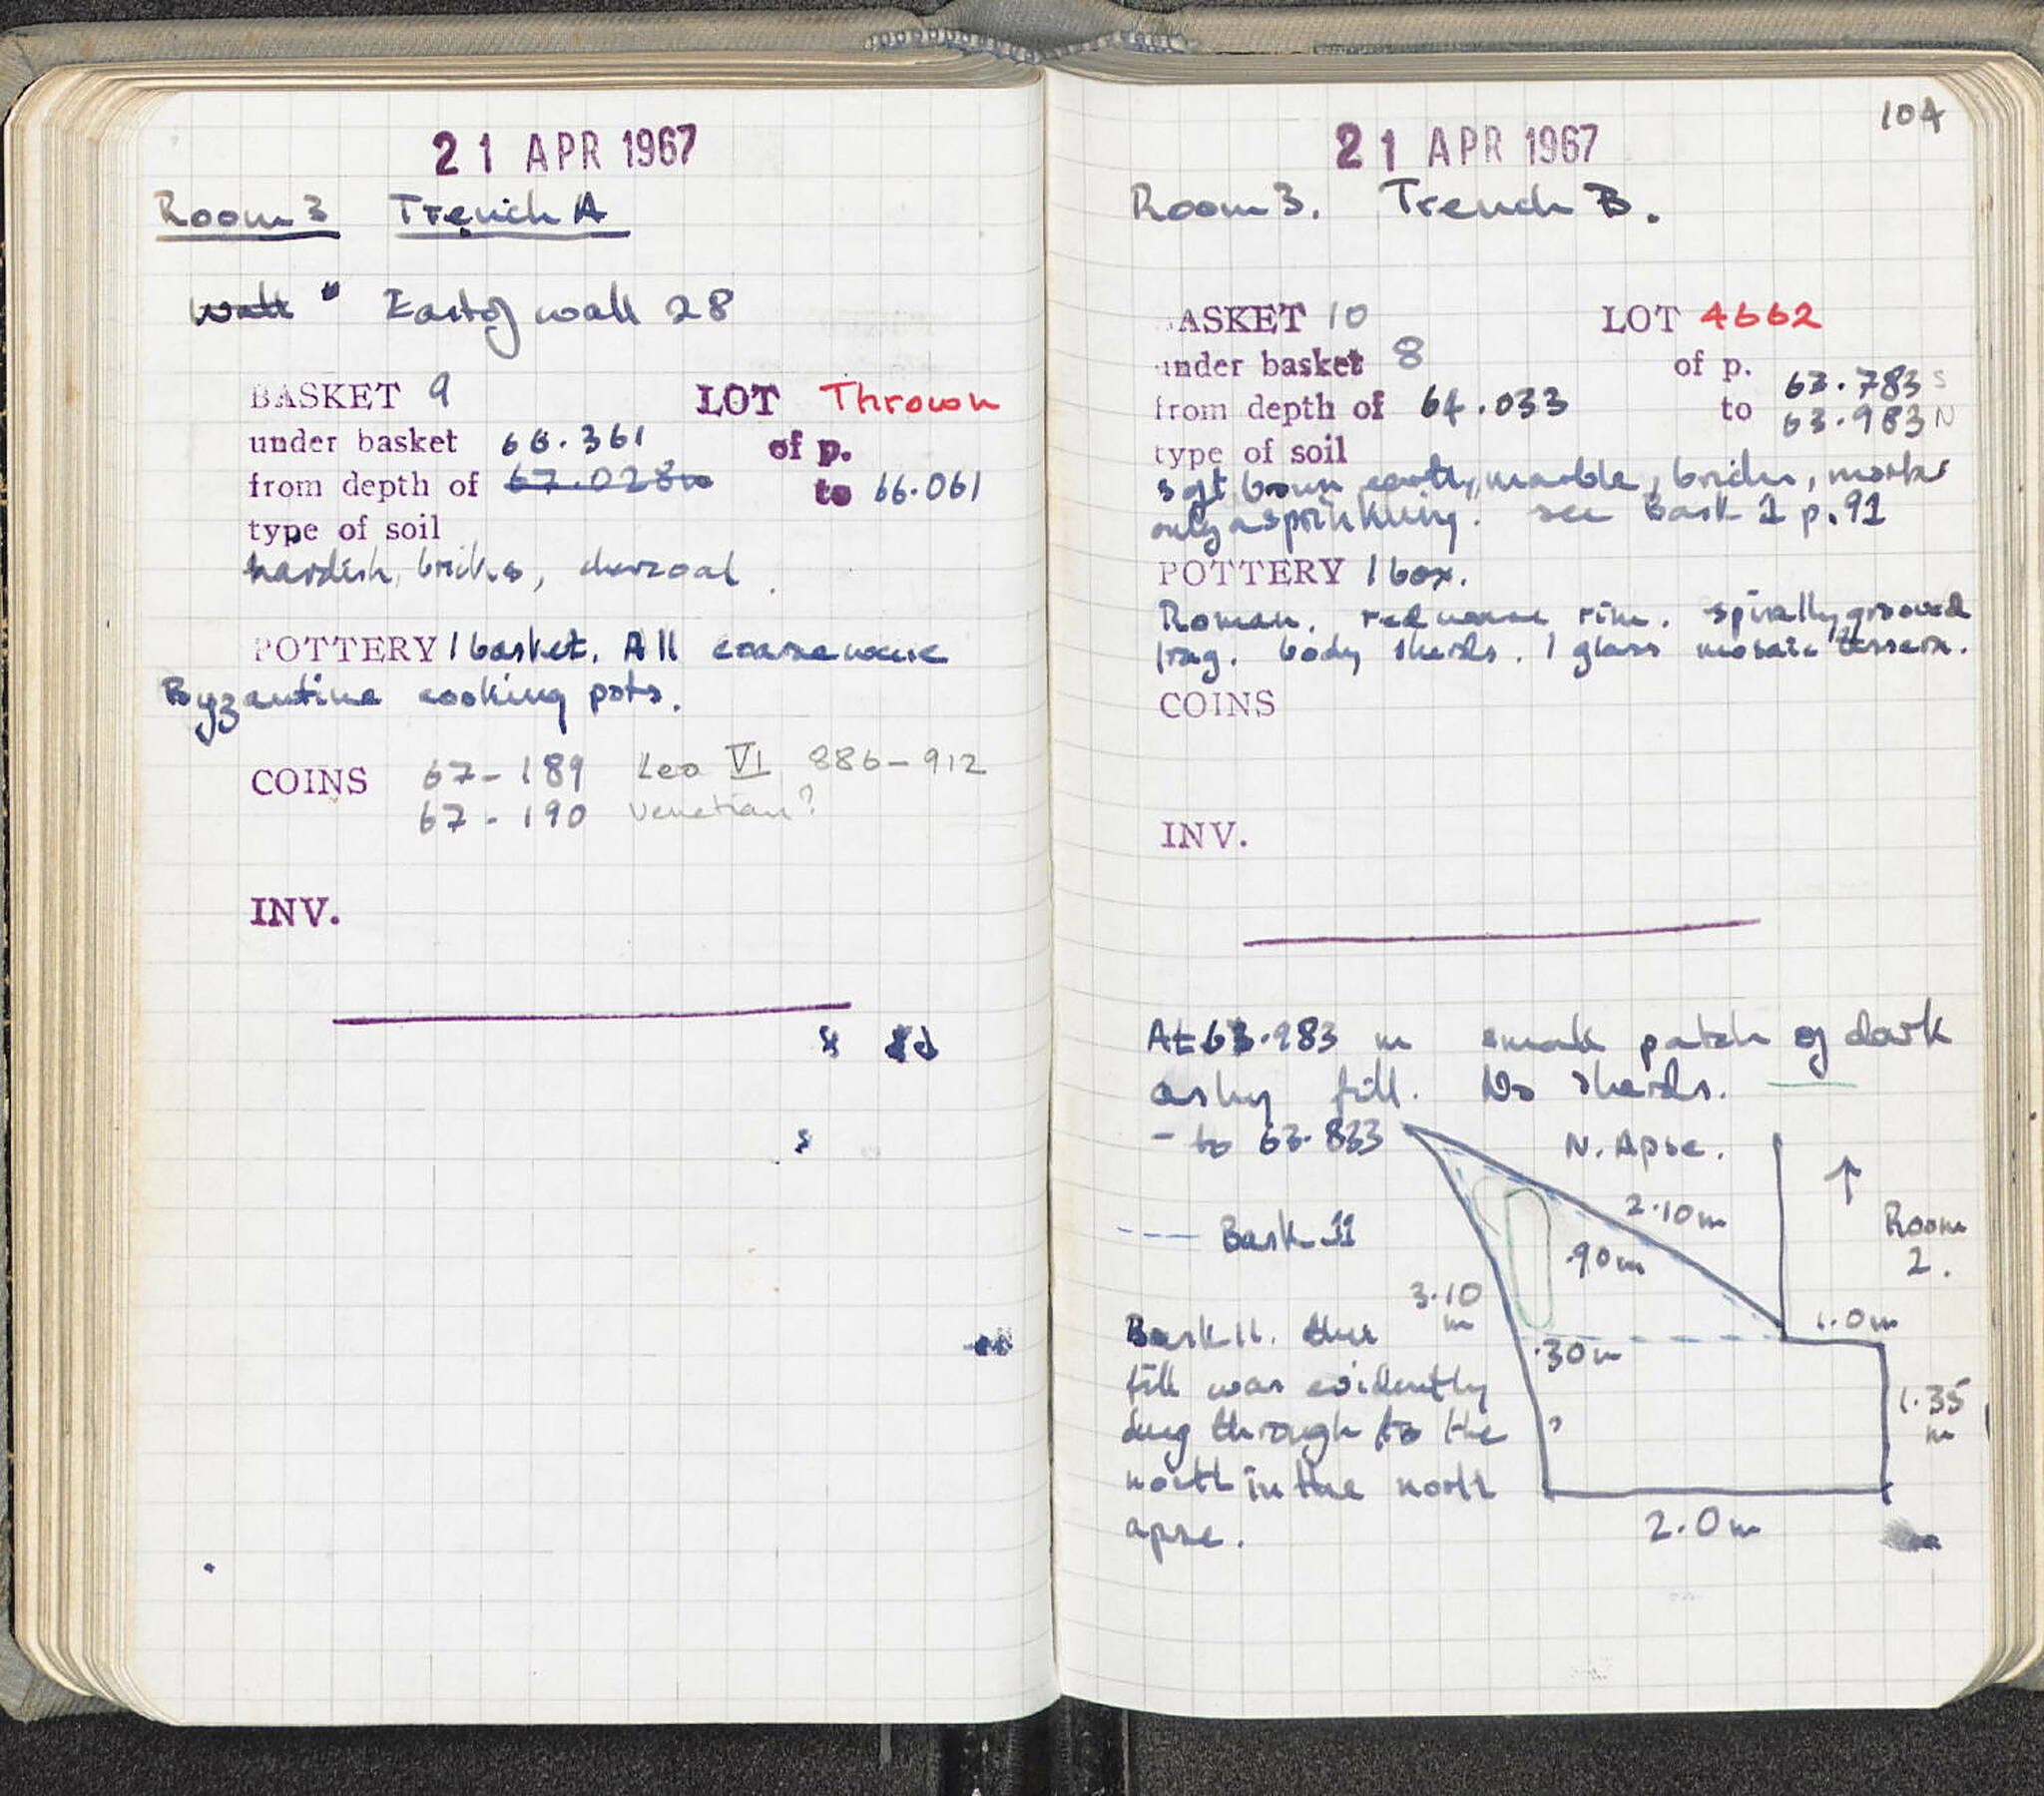 21 APR 1967
Room 3 Trench A
wall " East of wall 28
BASKET 9 LOT Thrown
under basket 66.361 of p.
from depth of 67.028m to 66.061
type of soil
hardish, bricks, charcoal.
POTTERY 1 basket. All coarse ware
Byzantine cooking pots.
COINS 67-189 Leo VI 886-912
67-190 Venetian?
INV.
104
21 APR 1967
Room 3. Trench B.
BASKET 10 LOT 4662
under basket 8 of p.
from depth of 64.033 to 63.783 S
63.983 N
type of soil
soft brown earth, marble, bricks,
only a sprinkling. see Bask 1 p.91
POTTERY 1 box.
Roman. red ware rim. spirally grooved
frag. body sherds. 1 glass mosaic tessera.
COINS
INV.
At 63.983 m small patch of dark
ashy fill. No sherds.
- to 63.833
N. Apse.
2.10m
Room
2.
--- Bask 11
.90m
3.10
m
1.0m
.30m
1.35
m
2.0m
Bask 11. this
fill was evidently
dug through to the
north in the north
apse.